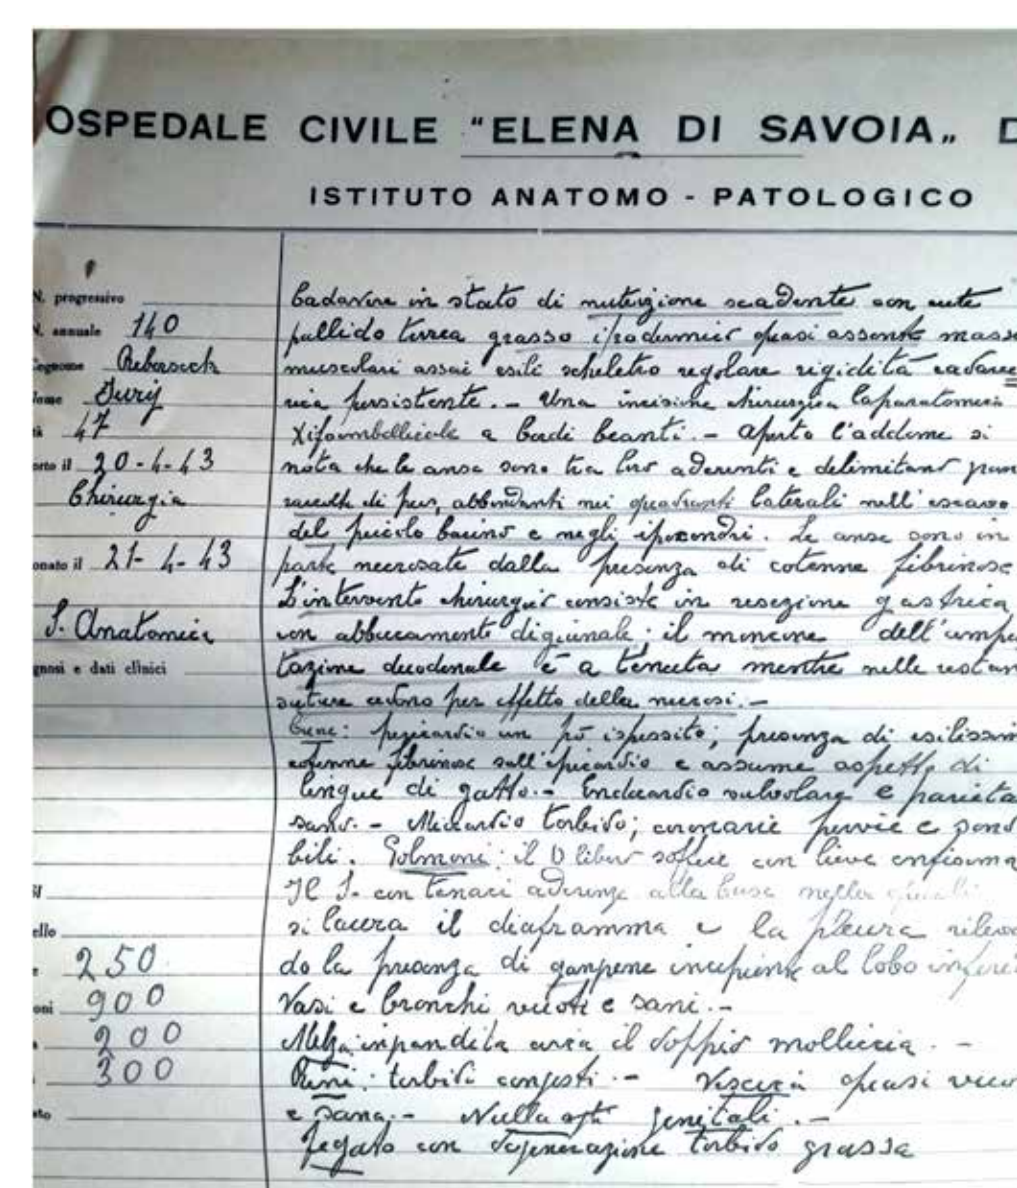 OSPEDALE CIVILE "ELENA DI SAVOIA„ D
ISTITUTO ANATOMO - PATOLOGICO
N. progressivo
N. annuale 140
Rebersech
Jurij
47
orto il 20-4-43
Chirurgia
onato il 21-4-43
S. Anatomica
gnosi e dati clinici
il
ello
250
oni 900
200
300
ato
Cadavere in stato di nutrizione scadente con cute
pallido terrea grasso ipodermico quasi assente masse
muscolari assai esili scheletro regolare rigidità cadave
rica persistente. - Una incisione chirurgica laparatomica
Xifoombellicale a bordi beanti. - Aperto l'addome si
nota che le anse sono tra loro aderenti e delimitano gran
raccolte di pus, abbondanti nei quadranti laterali nell'escavo
del piccolo bacino e negli ipocondri. Le anse sono in
parte necrosate dalla presenza di cotenne fibrinose
L'intervento chirurgico consiste in resezione gastrica
con abboccamento digiunale: il moncone dell'ampu
tazione duodenale è a tenuta mentre nelle restan
suture cedono per effetto della necrosi. -
Cuore: pericardio un pò ispessito; presenza di esilissim
cotenne fibrinose sull'epicardio e assume aspetto di
lingue di gatto. - Endocardio valvolare e parieta
sano. - Miocardio torbido; coronarie pervie e
bili. Polmoni: il D libero soffice con lieve enfisema
Il S. con tenaci aderenze alla base nella quale
si lacera il diaframma e la pleura rileva
do la presenza di gangrene incipiente al lobo inferi
Vasi e bronchi vuoti e sani. -
Milza: inpandita circa il doppio molliccia. -
Reni: torbidi congesti. - Vescica quasi vuo
e sana. - Nulla genitali. -
Fegato con degenerazione torbido grassa